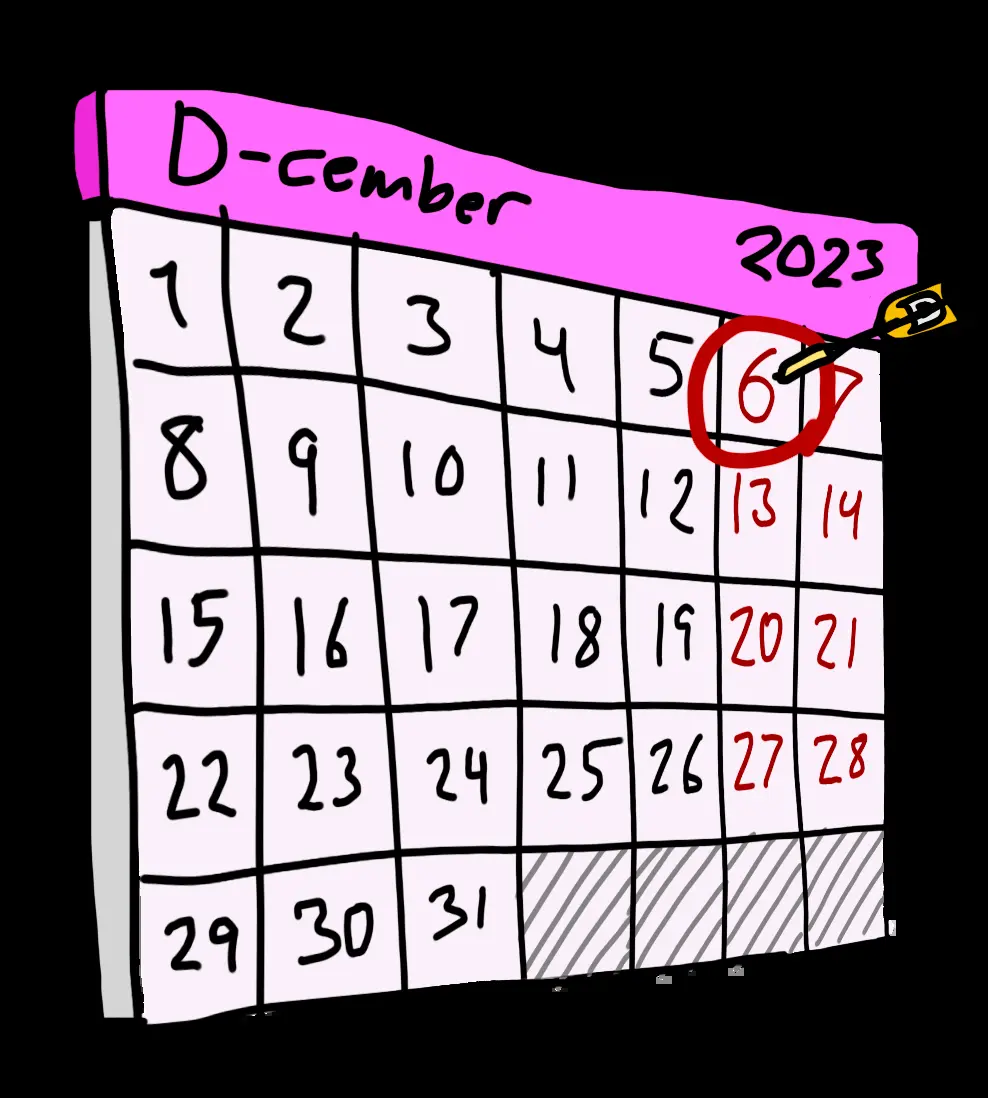 D-cember
2023
1 2 3 4 5 6 7
D
8 9 10 11 12 13 14
15 16 17 18 19 20 21
22 23 24 25 26 27 28
29 30 31